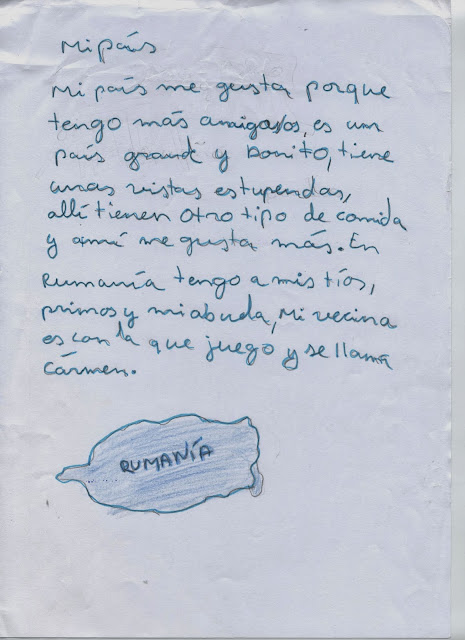 Mi país
Mi país me gusta porque
tengo más amigos, es un
país grande y bonito, tiene
unas vistas estupendas,
allí tienen otro tipo de comida
y amí me gusta más. En
Rumanía tengo a mis tíos,
primos y mi abuela, Mi vecina
es con la que juego y se llama
Cármen.
RUMANÍA